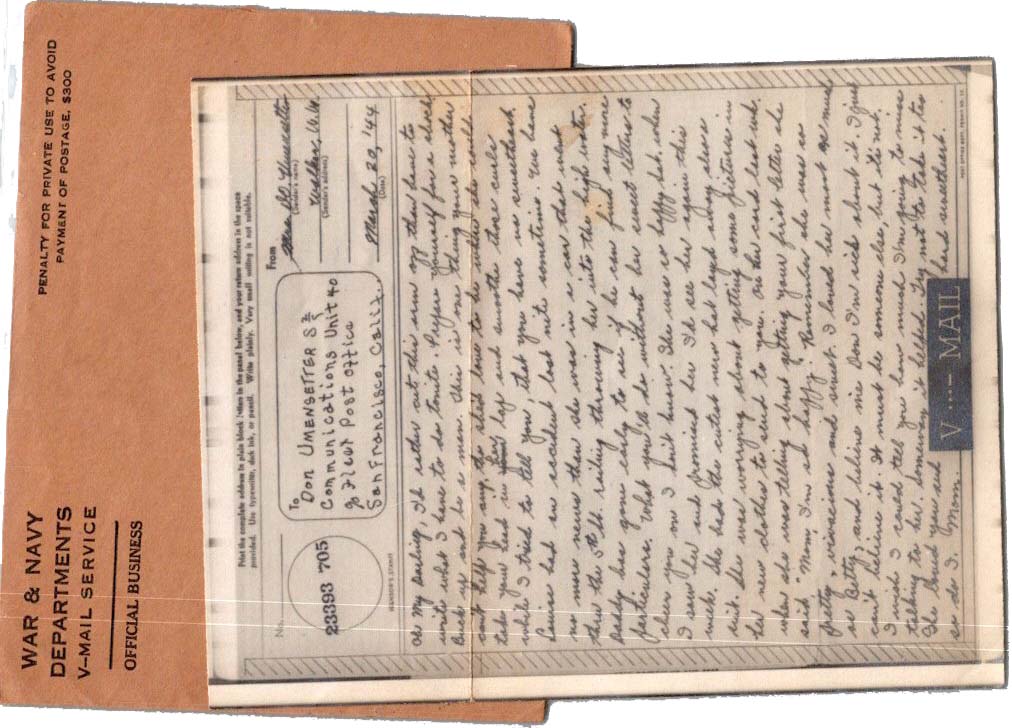 WAR & NAVY
DEPARTMENTS
V–MAIL SERVICE
OFFICIAL BUSINESS
PENALTY FOR PRIVATE USE TO AVOID
PAYMENT OF POSTAGE, $300
Print the complete address in plain block letters in the panel below, and your return address in the space
provided. Use typewriter, dark ink, or pencil. Write plainly. Very small writing is not suitable.
No.
23393 705
(CENSOR'S STAMP)
To
DON UMENSETTER S 2/c
Communications Unit 40
% Fleet Post Office
San Francisco, Calif.
From
Mrs. W. Umensetter
(Sender's name)
(Sender's address)
March 20, '44
(Date)
Oh My Darling, I'd rather cut this arm off than have to
write what I have to do tonite. Prepare yourself for a shock
Buck up and be a man. This is one thing your mother
can't help you any, tho she'd love to be where she could
take your head in her lap and smoothe those curls
while I tried to tell you that you have no sweetheart
Louise had an accident last nite sometime. We have
no more news than she was in a car that went
thru the St. railing throwing her into the high water.
Daddy has gone early to see if he can find any more
particulars. What you'll do without her sweet letters to
cheer you on I don't know. She was so happy hon, when
I saw her and promised her I'd see her again this
week. She had the cutest new hat laying away also a
suit. She was worrying about getting some pictures in
her new clothes to send to you. and last week
when she was telling about getting your first letter she
said "Mom I'm so happy". Remember she was so
pretty, vivacious and sweet. I loved her most as much
as Betty, and believe me Don I'm sick about it. I just
can't believe it. It must be someone else, but its not.
I wish I could tell you how much I'm going to miss
talking to her. Someway it helped. Try not to take it to
She loved you and hard sweetheart.
so do I. Mom.
V···– MAIL
POST OFFICE DEPT. PERMIT NO.